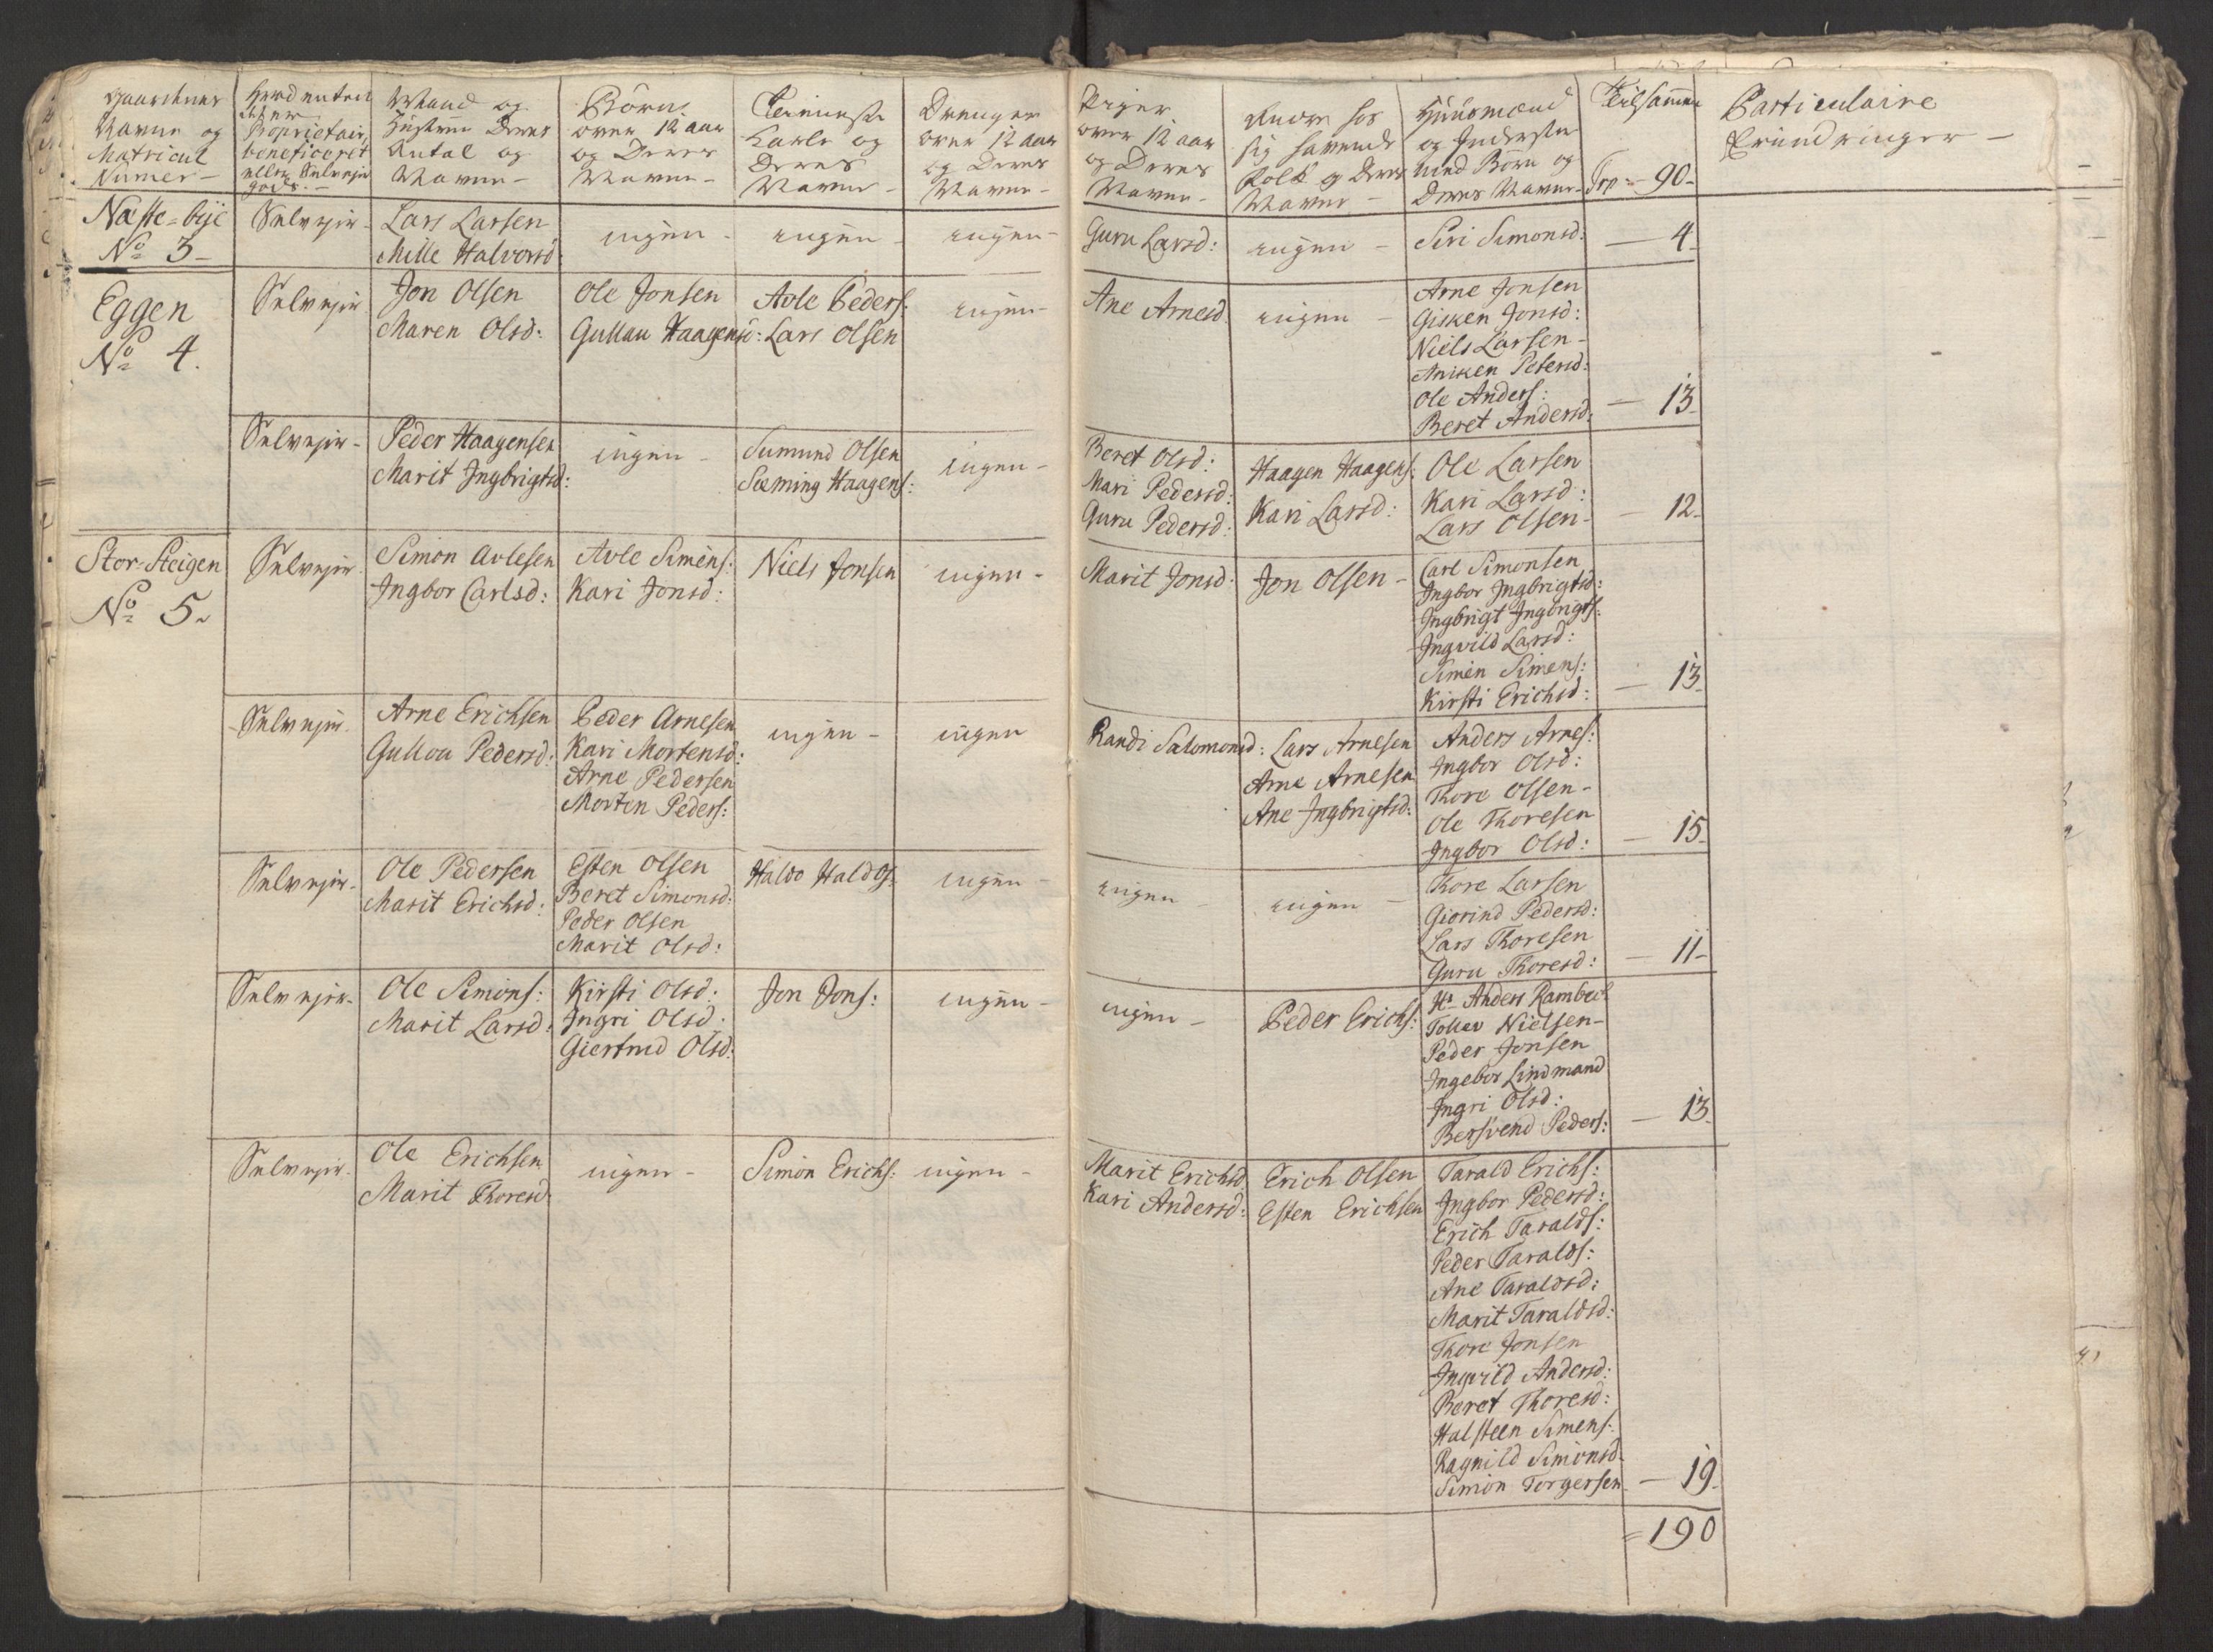 Gaardenes
Navne og
Matricul
Numer -
Hvad enten
Proprietair,
beneficeret
eller Selveyer
gods. -
Mand og
Hustrue Deres
Antal og
Navne -
Börn
over 12 aar
og Deres
Navne -
Tieneste
Karle og
Deres
Navne -
Drenger
over 12 aar
og Deres
Navne -
Piger
over 12 aar
og Deres
Navne -
Andre hos
sig havende
Folk og Deres
Navne -
Huusmænd
og Inderster
med Börn og
Deres Navne -
Tilsammen
Trp: - 90 -
Particulaire
Erindringer -
Næste-bye
No 3 -
Selveyer -
Lars Larsen
Mille Halvorsd:
ingen -
ingen -
ingen -
Guru Larsd:
ingen -
Siri Simonsd:
- 4 -
Eggen
No 4.
Selveyer
Jon Olsen
Maren Olsd:
Ole Jonsen
Gullau Haagensd:
Avle Peders:
Lars Olsen
ingen -
Ane Arnesd:
ingen -
Arne Jonsen
Gisken Jonsd:
Niels Larsen -
Aniken Petersd:
Ole Anders:
Beret Andersd:
- 13 -
Selveyer -
Peder Haagensen
Marit Ingbrigtsd:
ingen -
Sumund Olsen
Sæming Haagens:
ingen -
Beret Olsd:
Mari Pedersd:
Guru Pedersd:
Haagen Haagens:
Kari Larsd:
Ole Larsen
Kari Larsd:
Lars Olsen -
- 12 -
Stor-Steigen
No 5.
Selveyer
Simon Avlesen
Ingbor Carlsd:
Avle Simens:
Kari Jonsd:
Niels Jonsen
ingen -
Marit Jonsd:
Jon Olsen -
Carl Simonsen
Ingbor Ingbrigtsd:
Ingbrigt Ingbrigts:
Ingvild Larsd:
Simen Simens:
Kirsti Erichsd:
- 13 -
Selveyer
Arne Erichsen
Gullou Pedersd:
Peder Arnesen
Kari Mortensd:
Arne Pedersen
Morten Peders:
ingen -
ingen
Randi Salomonsd:
Lars Arnesen
Arne Arnesen
Ane Ingbrigtsd:
Anders Arnes:
Ingbor Olsd:
Thore Olsen -
Ole Thoresen
Ingbor Olsd:
- 15 -
Selveyer -
Ole Pedersen
Marit Erichsd:
Esten Olsen
Beret Simonsd:
Peder Olsen
Marit Olsd:
Haldo Haldos:
ingen -
ingen -
ingen -
Thore Larsen
Giorind Pedersd:
Lars Thoresen
Guru Thoresd:
- 11 -
Selveyer -
Ole Simons:
Marit Larsd:
Kirsti Olsd:
Ingri Olsd:
Giertrud Olsd:
Jon Jons:
ingen -
ingen -
Peder Erichs:
Hr Anders Rambech
Tollev Nielsen -
Peder Jonsen
Ingebor Lindmand
Ingri Olsd:
Bersvend Peders:
- 13 -
Selveyer -
Ole Erichsen
Marit Thoresd:
ingen -
Simon Erichs:
ingen -
Marit Erichsd:
Kari Andersd:
Erich Olsen
Esten Erichsen
Tarald Erichs:
Ingbor Pedersd:
Erich Taralds:
Peder Taralds:
Ane Taraldsd:
Marit Taraldsd:
Thore Jonsen
Ingvild Andersd:
Beret Thoresd:
Halsteen Simens:
Ragnild Simonsd:
Simon Torgersen
- 19 -
= 190